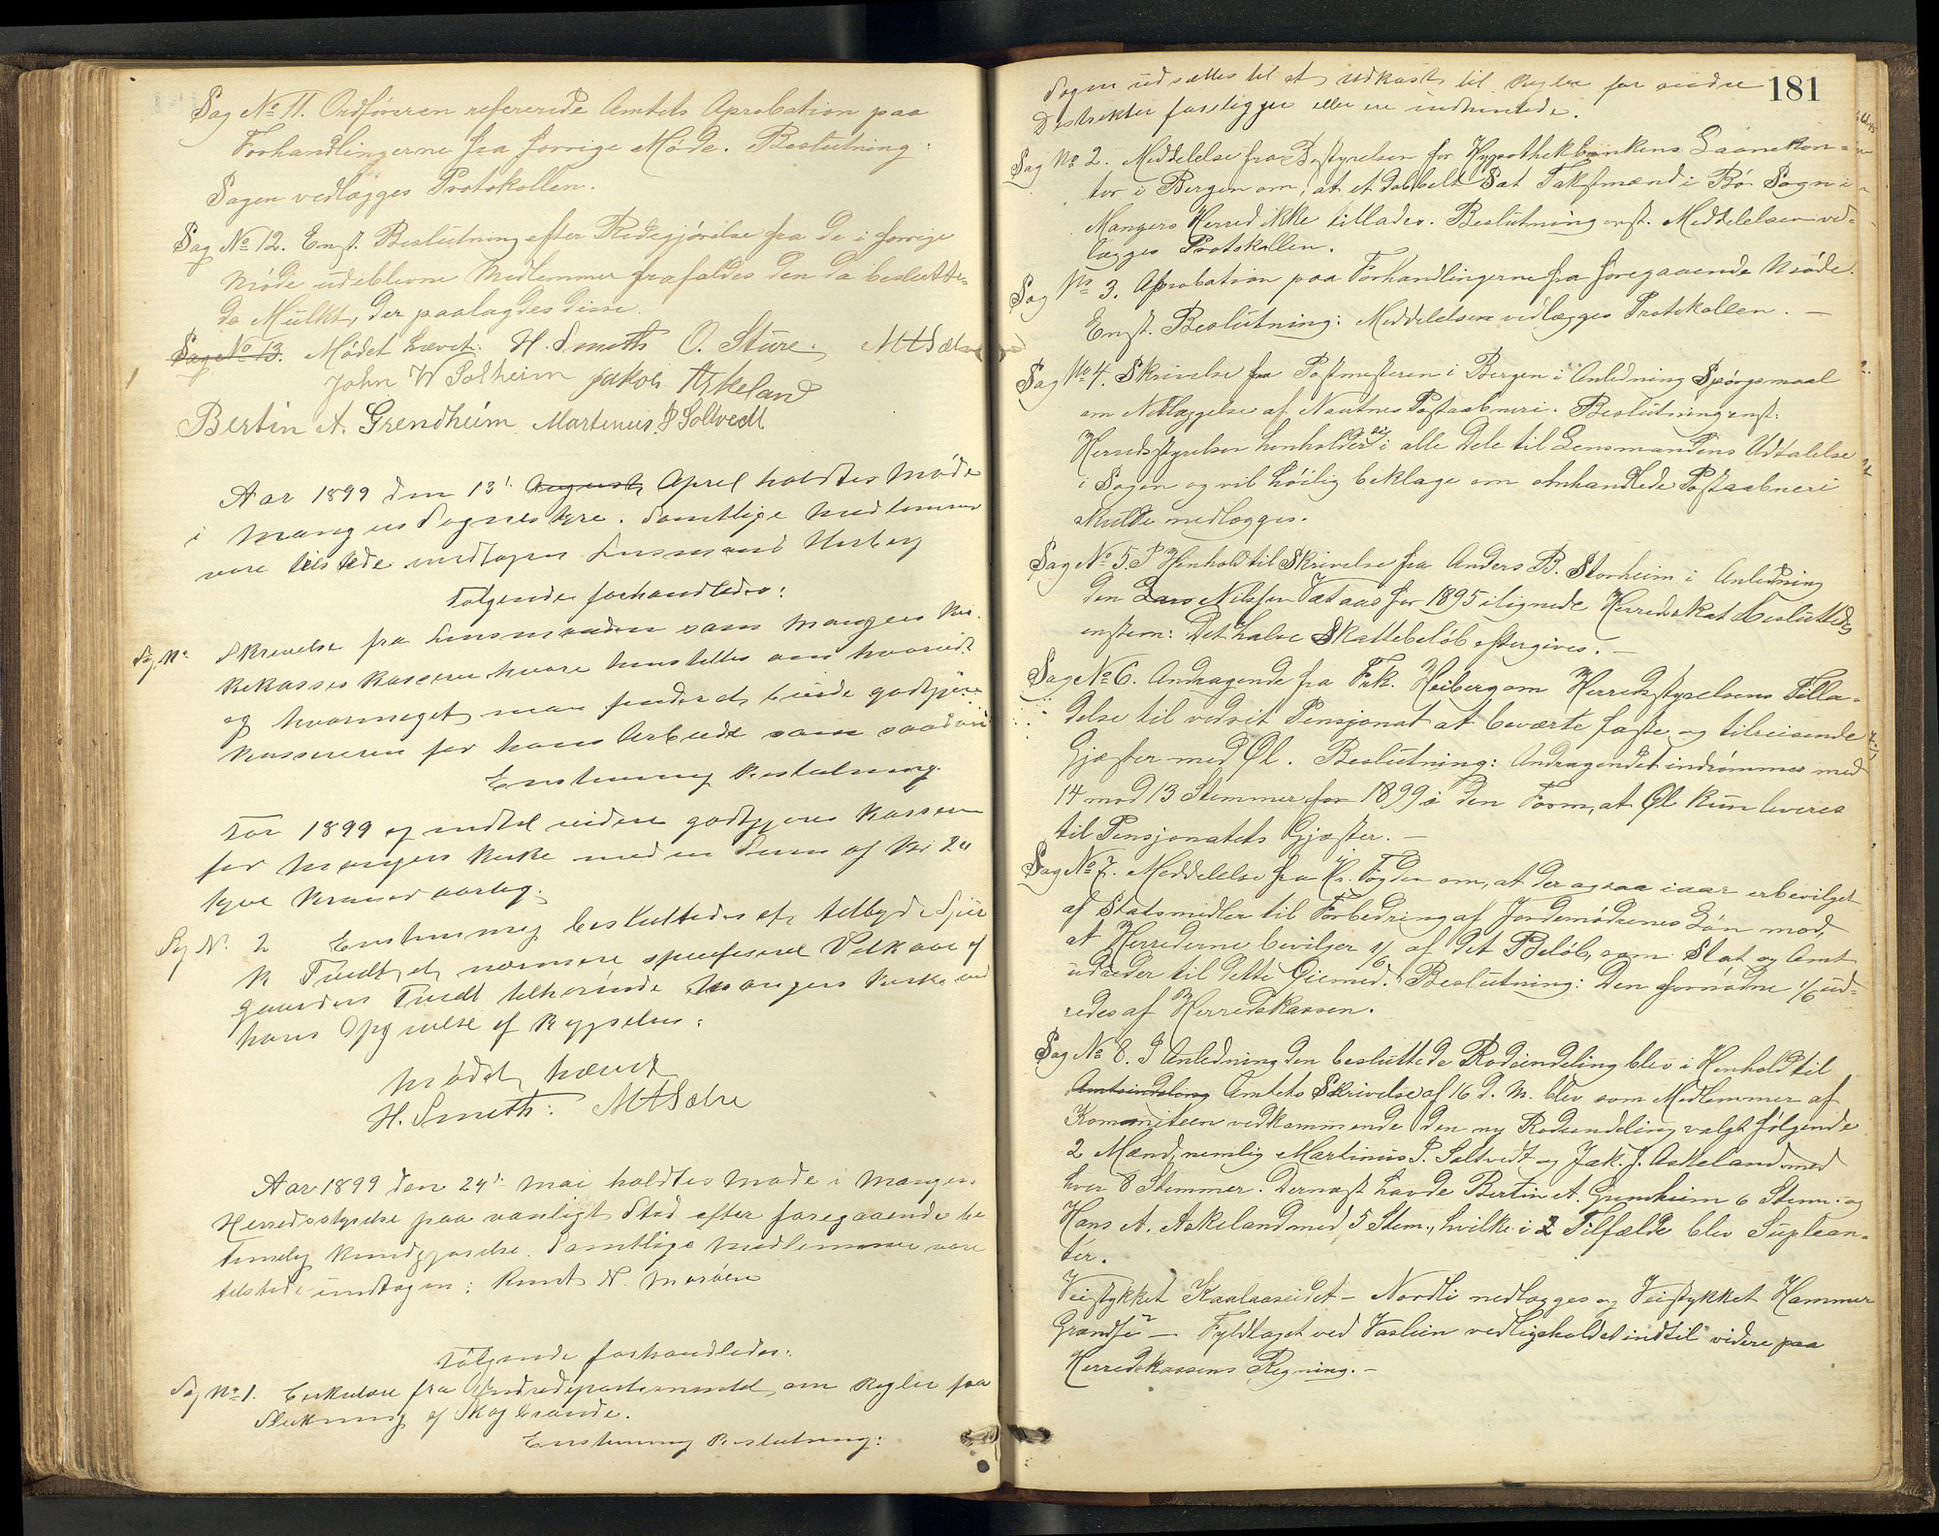 Sag No 11. Ordføreren refererede Amtets Aprobation paa
Forhandlingerne fra forrige Møde. Beslutning:
Sagen vedlægges Protokollen.
Sag No 12. Enst. Beslutning efter Redegjørelse fra de i forrige
Møde udeblevne Medlemmer frafaldes den da beslutte-
de Mulkt, der paalagdes disse.
Sag No 13. Mødet hævet. H. Smeth O. Sture.
John W Solheim Jakob Askeland
Bertin A. Grendheim Martinus P Soltvedt
Aar 1899 den 13' August April holdtes Møde
i Mangers Sognestyre. Samtlige Medlemmer
vare tilstede undtagen Lensmand
Følgende forhandledes:
Sag No Skrivelse fra Lensmanden som Mangers Kir-
kekasses Kasserer hvori henstilles om hvorvidt
og hvormeget man finder at burde godtgjøre
Kassereren for hans Arbeide som saadan
Enstemmig Beslutning
For 1899 og indtil videre godtgjøres Kasserer
for Mangers Kirke med en Sum af Kr 20
tyve Kroner aarlig.
Sag No 2 Enstemmig besluttedes at tilbyde
K Tvedt et nærmere specificeret Vilkaar af
Gaarden Tvedt tilhørende Mangers Kirke ved
hans Opgivelse af Bygselen.
Mødet hævet
H. Smeth.
Aar 1899 den 24' Mai holdtes Møde i Mangers
Herredsstyrelse paa vanligt Sted efter foregaaende be
timelig Kundgjørelse. Samtlige Medlemmer vare
tilstede undtagen: Knut N. Marøen
Følgende forhandledes:
Sag No 1. Cirkulære fra Indredepartementet om Regler for
Slukning af Skogbrande.
Enstemmig Beslutning:
181
Sagen udsættes til et Udkast til Regler for andre
Distrikter foreligger eller ere indhentede.
Sag No 2. Meddelelse fra Bestyrelsen for Hypothekbankens Laanekon-
tor i Bergen om, at et dobbelt Sæt Takstmænd i Bø Sogn i
Mangers Herred ikke tillades. Beslutning enst. Meddelelsen ved-
lægges Protokollen.
Sag No 3. Aprobation paa Forhandlingerne fra foregaaende Møde.
Enst. Beslutning: Meddelelsen vedlægges Protokollen. —
Sag No 4. Skrivelse fra Postmesteren i Bergen i Anledning Spørgsmaal
om Nedlæggelse af Nautnes Postaabneri. Beslutning enst:
Herredsstyrelsen henholder sig i alle Dele til Lensmandens Udtalelse
i Sagen og vil høilig beklage om omhandlede Postaabneri
skulde nedlægges.
Sag No 5 I Henhold til Skrivelse fra Anders B. Storheim i Anledning
den Lars Nilssen Vataas for 1895 ilignede Herredsskat besluttedes
enstem: Det halve Skattebeløb eftergives. —
Sag No 6. Andragende fra Frk. Heiberg om Herredsstyrelsens Tilla-
delse til ved sit Pensjonat at beværte faste og tilreisende
Gjæster med Øl. Beslutning: Andragendet indrømmes med
14 mod 13 Stemmer for 1899 i den Form, at Øl kun leveres
til Pensjonatets Gjæster. —
Sag No 7. Meddelelse fra Hr. Fogden om, at der ogsaa iaar er bevilget
af Statsmidler til Forbedring af Jordemødrenes Løn mod,
at Herrederne bevilger 1/6 af det Beløb, som Stat og Amt
udreder til dette Øiemed. Beslutning: Den fornødne 1/6 ud-
redes af Herredskassen.
Sag No 8. I Anledning den besluttede Rodeindeling blev i Henhold til
Amtsindeling Amtets Skrivelse af 16 d. M. blev som Medlemmer af
Kommiteen vedkommende den ny Rodeindeling valgt følgende
2 Mænd, nemlig Martinus P. Soltvedt og Jak. J. Askeland med
hver 8 Stemmer. Dernæst havde Bertin A. Grendheim 6 Stem. og
Hans A. Askeland med 5 Stem., hvilke i 2 Tilfælde blev Suplean-
ter.
Veistykket Kaalaaseidet – Nordli nedlægges og Veistykket Hammer
Grændse – Fyldtaget ved Vaslien vedligeholdes indtil videre paa
Herredskassens Regning. –